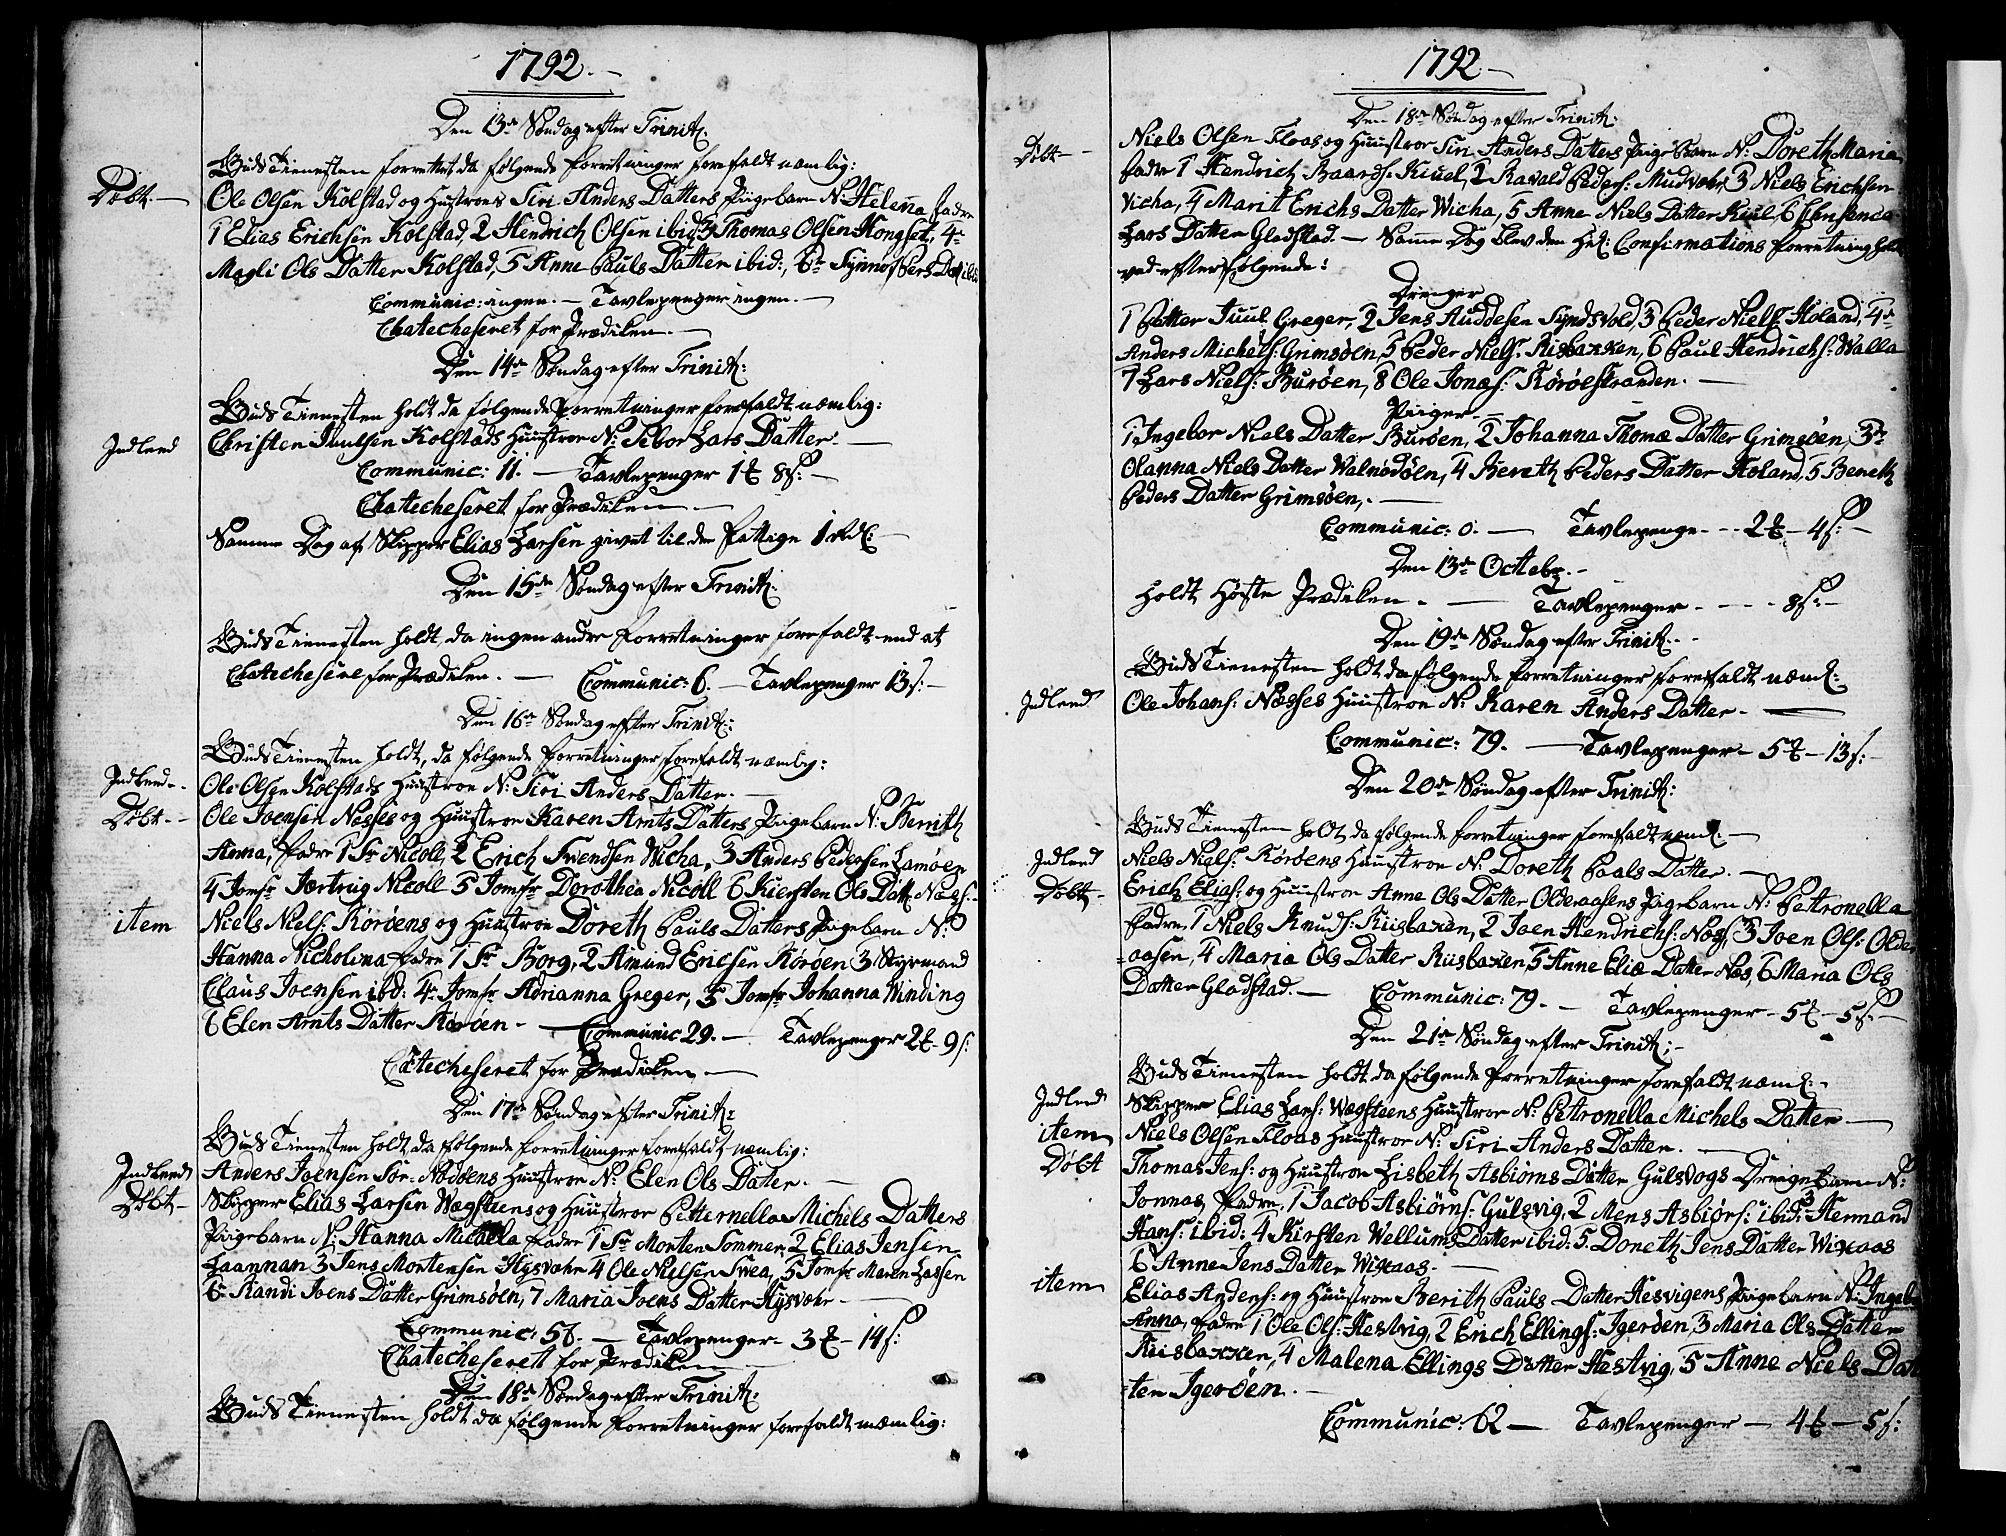 1792.
Den 13de Søndag efter Trinit:
Guds Tienesten forrettet da følgende forretninger forefaldt nemlig:
Døbt. Ole Olsen Kolstad og Hustroes Siri Anders Datters Pigebarn N: Helena fadre
1 Elias Erichsen Kolstad, 2 Hendrich Olsen ibid: 3 Thomas Olsen Hongset, 4
Magli Ols Datter Kolstad, 5 Anne Pauls Datter ibid:, 6
Communic: ingen. Tavlepenger ingen.
Chatecheseret for Prædiken.
Den 14de Søndag efter Trinit:
Guds Tienesten holdt da følgende forretninger forefaldt næmlig:
Indleed Christen Juulsen Kolstads Huustroe N: Sibor Lars Datter.
Communic: 11. Tavlepenger 1 8 s:
Chatecheseret for Prædiken
Samme Dag af Skipper Elias Larsen givet til de Fattige 1 Rdl:
Den 15de Søndag efter Trinit:
Guds Tienesten holdt, da ingen andre forretninger forefaldt end at
Chatechesere for Prædiken. Communic: 6. Tavlepenger 13 s:
Den 16de Søndag efter Trinit:
Guds Tienesten holdt, da følgende forretninger forefaldt næmlig:
Indleed Ole Olsen Kolstads Huustroe N: Siri Anders Datter.
Døbt Ole Joensen Næsses og Huustroe Karen Arnts Datters Pigebarn N: Berith
Anna, fadre 1 Sr Nicoll, 2 Erich Svendsen Wicha, 3 Anders Pedersen Lamøen
4 Jomfr Jertrug Nicoll 5 Jomfr Dorothea Nicoll 6 Kiersten Ols Datt: Næss:
item Niels Niels: Rørøens og Huustroe Doreth Pauls Datters Pigebarn N:
Hanna Nicholina fadre 1 Sr Borg, 2 Amund Ericsen Rørøen 3 Styrmand
Claus Joensen ibd: 4 Jomfr Adrianna Greger, 5 Jomfr Johanna Winding
6 Elen Arnts Datter Rørøen. Communic 29. Tavlepenger 2 9 s:
Catecheseret for Prædiken
Den 17de Søndag efter Trinit:
Guds Tienesten holdt da følgende forretninger forefaldt næmlig:
Indleed Anders Joensen Sør-Nødøens Huustroe N: Elen Ols Datter.
Døbt Skipper Elias Larsen Wægsteens og Huustroe Petternella Michels Datters
Pigebarn N: Hanna Micaella fadre 1 Sr Morten Sommer, 2 Elias Jensen
Laannan 3 Jens Mortensen Hysvær 4 Ole Nielsen Svea, 5 Jomfr Maren Lassen
6 Randi Joens Datter Grimsøen, 7 Maria Joens Datter Hysvær
Communic: 57. Tavlepenger 3 14 s:
Chatecheseret for Prædiken
Den 18de Søndag efter Trinit:
Guds Tienesten holdt da følgende forretninger forefaldt næmlig:
1792
Den 18de Søndag efter Trinit:
Døbt Niels Olsen Floas og Huustroe Siri Anders Datters Pige Barn N: Doreth Maria
fadre 1 Hendrich Baards: Kiuel, 2 Ravald Peders: Mudvær, 3 Niels Erichsen
Vicha, 4 Marit Erichs Datter Wicha, 5 Anne Niels Datter Kiul, 6
Lars Datter Gladstad. Samme Dag blev den Hel: Confirmations forretning holdt
ved efterfølgende:
Drenger
1 Petter Juul Greger, 2 Jens Auddesen Syndsvold, 3 Peder Niels: Holand, 4
Anders Michels: Grimsøen, 5 Peder Niels: Risbakken, 6 Paul Hendrichs: Walla
7 Lars Niels: Burøen, 8 Ole Jonæs: Rørøestranden.
Piiger
1 Ingebor Niels Datter Burøen, 2 Johanna Thomæ Datter Grimsøen, 3
Olanna Niels Datter Walnødøen, 4 Bereth Peders Datter Holand, 5 Beneth
Peders Datter Grimsøen,.
Communic: 0. Tavlepenge 2 4 s:
Den 13de Octobr.
Holdt Høste Prædiken. Tavlepenger 8 s:
Den 19de Søndag efter Trinit:
Guds Tienesten holdt da følgende forretninger forefaldt næml:
Indleed Ole Johans: Næsses Huustroe N: Karen Anders Datter.
Communic: 79. Tavlepenger 5 13 s:
Den 20de Søndag efter Trinit:
Guds Tienesten holdt da følgende forretninger forefaldt næml:
Indleed Niels Niels: Rørøens Huustroe N: Doreth Paals Datter.
Døbt Erich Elias: og Huustroe Anne Ols Datter Olderaasens Pigebarn N: Pettronella
fadre, 1 Niels Knuds: Riisbaxen, 2 Joen Hendrichs: Næss, 3 Joen Ols: Older
aasen, 4 Maria Ols Datter Riisbaxen 5 Anne Eliæ Datter Næs, 6 Maria Ols
Datter Gladstad. Communic: 79. Tavlepenger 5 5 s:
Den 21de Søndag efter Trinit:
Guds Tienesten holdt da følgende forretninger forefaldt næml:
Indleed Skipper Elias Lars: Wægsteens Huustroe N: Pettronella Michels Datter
item Niels Olsen Floas Huustroe N: Siri Anders Datter.
Døbt Thomas Jens: og Huustroe Lisbeth Asbiørns Datter Gulsvogs Drengebarn N:
Jonnas, fadre, 1 Jacob Asbiørns: Gulsvig, 2 Mens Asbiørs: ibid: 3 Hemand
Hans: ibid: 4 Kirsten Wellums Datter ibid: 5 Doreth Jens Datter Wixaas
6 Anne Jens Datter Wixaas.
item Elias Anders: og Huustroe Berith Pauls Datter Hesvigens Pigebarn N: Ingeb
Anna, fadre 1 Ole Ols: Hestvig, 2 Erich Ellings: Igerøen, 3 Maria Ols Datter
Riisbakken, 4 Malena Ellings Datter Hestvig, 5 Anne Niels Dat
ter Igerøen.
Communic: 62 Tavlepenger 4 5 s: